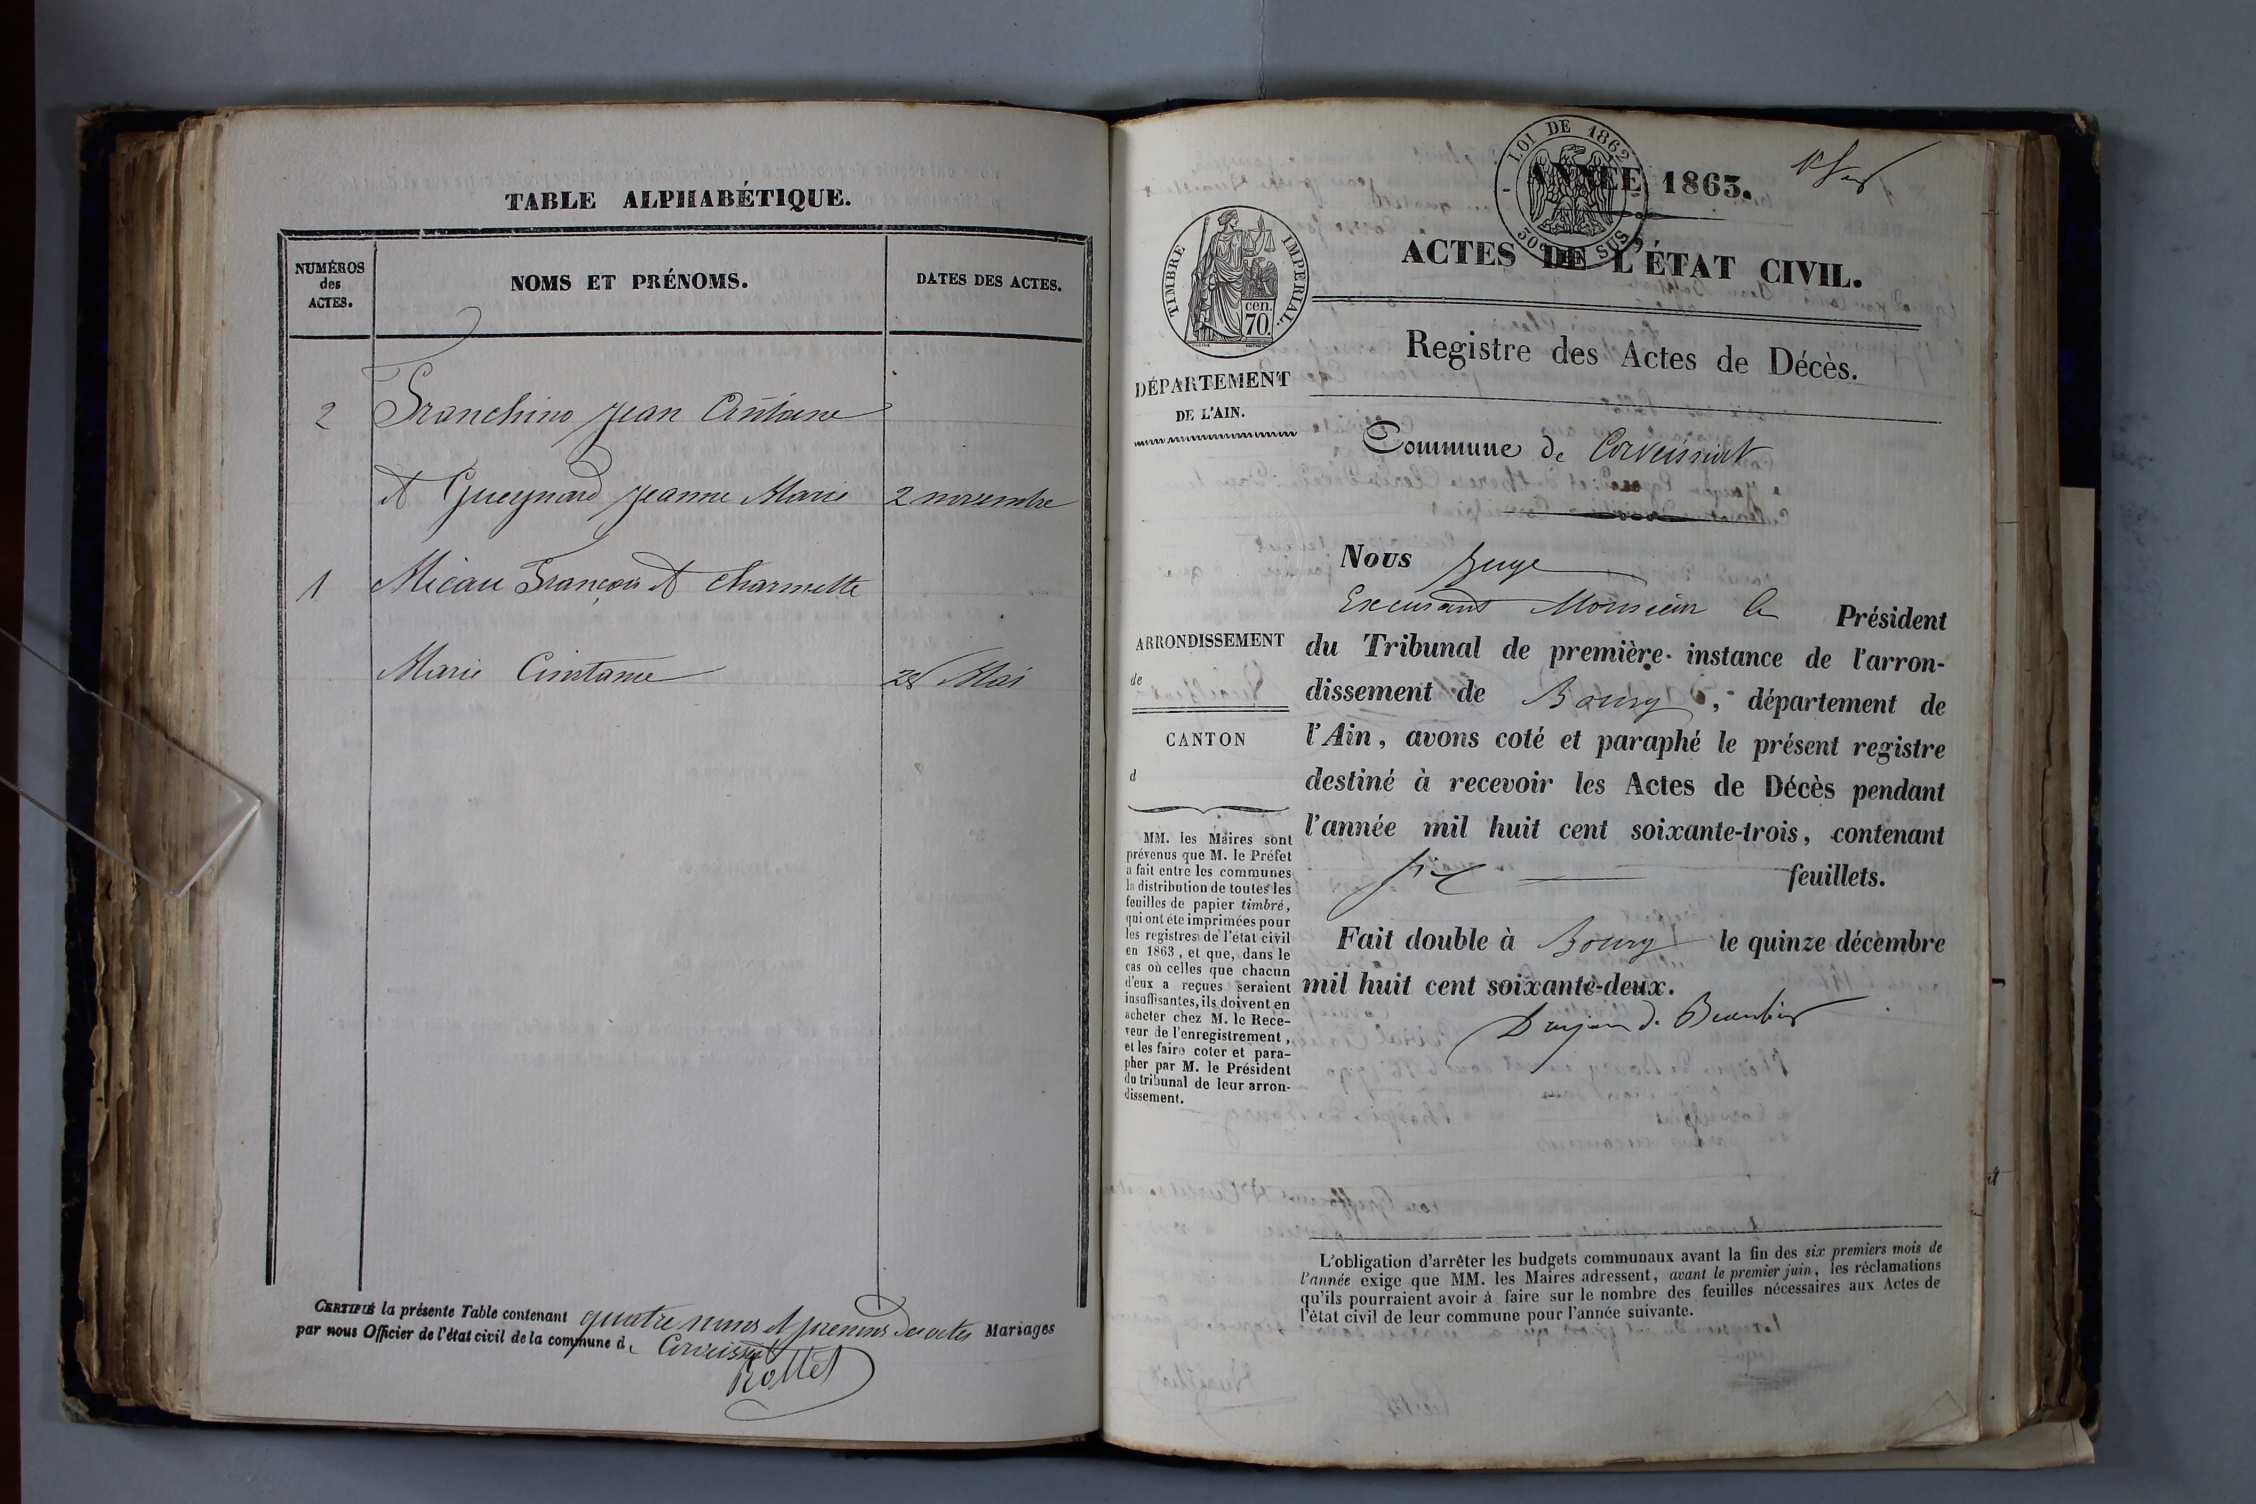 TABLE ALPHABÉTIQUE.
NUMÉROS
des
ACTES.
NOMS ET PRÉNOMS.
DATES DES ACTES.
2 Franchino Jean Antoine
et Gueynard Jeanne Marie 2 novembre
1 Micau François et Charmette
Marie Constance 28 Mai
CERTIFIÉ la présente Table contenant quatre noms et prenoms des actes Mariages
par nous Officier de l'état civil de la commune d. Corveissiat
Rollet
LOI DE 1862
50c EN SUS
ANNÉE 1863.
ACTES DE L'ÉTAT CIVIL.
TIMBRE IMPERIAL.
cen.
70.
Registre des Actes de Décès.
DÉPARTEMENT
DE L'AIN.
Commune de Corveissiat
Nous Juge
Excusant Monsieur le Président
du Tribunal de première instance de l'arron-
dissement de Bourg, département de
l'Ain, avons coté et paraphé le présent registre
destiné à recevoir les Actes de Décès pendant
l'année mil huit cent soixante-trois, contenant
six feuillets.
Fait double à Bourg le quinze décembre
mil huit cent soixante-deux.
ARRONDISSEMENT
de
CANTON
d
MM. les Maires sont
prévenus que M. le Préfet
a fait entre les communes
la distribution de toutes les
feuilles de papier timbré,
qui ont été imprimées pour
les registres de l'état civil
en 1863, et que, dans le
cas où celles que chacun
d'eux a reçues seraient
insuffisantes, ils doivent en
acheter chez M. le Rece-
veur de l'enregistrement,
et les faire coter et para-
pher par M. le Président
du tribunal de leur arron-
dissement.
L'obligation d'arrêter les budgets communaux avant la fin des six premiers mois de
l'année exige que MM. les Maires adressent, avant le premier juin, les réclamations
qu'ils pourraient avoir à faire sur le nombre des feuilles nécessaires aux Actes de
l'état civil de leur commune pour l'année suivante.